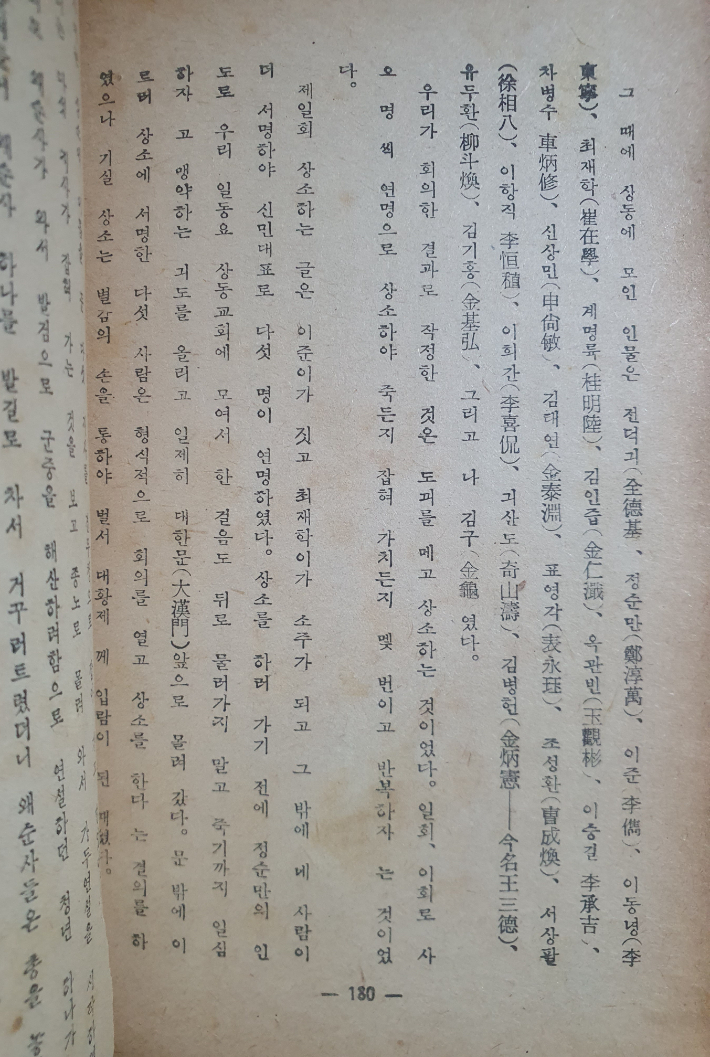 그 때에 상동에 모인 인물은 전덕기(全德基、정순만(鄭淳萬)、이준 李儁)、이동녕(李
東寧)、최재학(崔在學)、계명륙(桂明陸)、김인즙(金仁濈)、옥관빈(玉觀彬、이승길 李承吉)、
차병수 車炳修)、신상민(申尙敏)、김태연(金泰淵)、표영각(表永珏)、조성환(曺成煥)、서상팔
(徐相八)、이항직 李恒稙)、이희간(李喜侃)、기산도(奇山濤)、김병헌(金炳憲——今名王三德)、
유두환(柳斗煥)、김기홍(金基弘)、그리고 나 김구(金龜)였다。
우리가 회의한 결과로 작정한 것은 도끼를 메고 상소하는 것이었다。일회、이회로 사
오 명 씩 연명으로 상소하야 죽든지 잡혀 가치든지 몇 번이고 반복하자 는 것이었
다。
제일회 상소하는 글은 이준이가 짓고 최재학이가 소주가 되고 그 밖에 네 사람이
더 서명하야 신민대표로 다섯 명이 연명하였다。상소를 하러 가기 전에 정순만의 인
도로 우리 일동요 상동교회에 모여서 한 걸음도 뒤로 물러가지 말고 죽기까지 일심
하자 고 맹약하는 기도를 올리고 일제히 대한문(大漢門)앞으로 몰려 갔다。문 밖에 이
르러 상소에 서명한 다섯 사람은 형식적으로 회의를 열고 상소를 한다 는 결의를 하
였으나 기실 상소는 별감의 손을 통하야 벌서 대황제 께 입람이 된 때였다。
— 180 —
발검으로 군중을 해산하려함으로 연설하던 청년 하나가
하나를 발길로 차서 거꾸러트렸더니 왜순사들은 총을